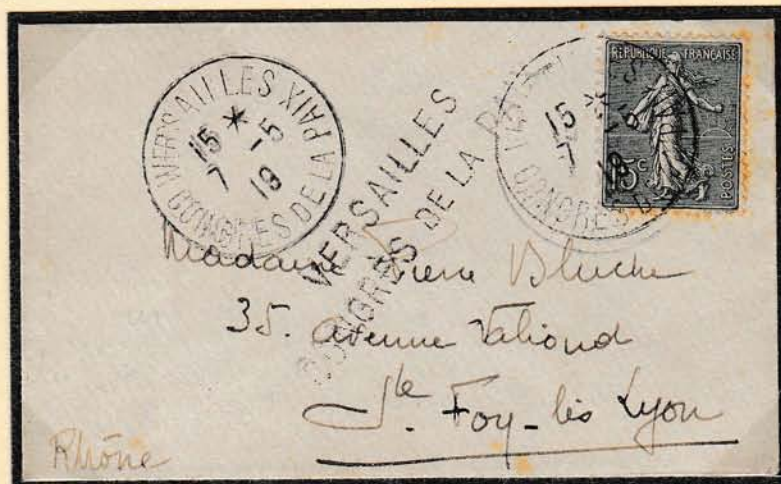 VERSAILLES
CONGRÈS DE LA PAIX
15 * -5
7 19
VERSAILLES
CONGRÈS DE LA PAIX
CONGRES
15 * -5
7 19
RÉPUBLIQUE FRANÇAISE
15c
POSTES
Madame Pierre Bluche
35. avenue Valioud
Ste. Foy-lès Lyon
Rhône